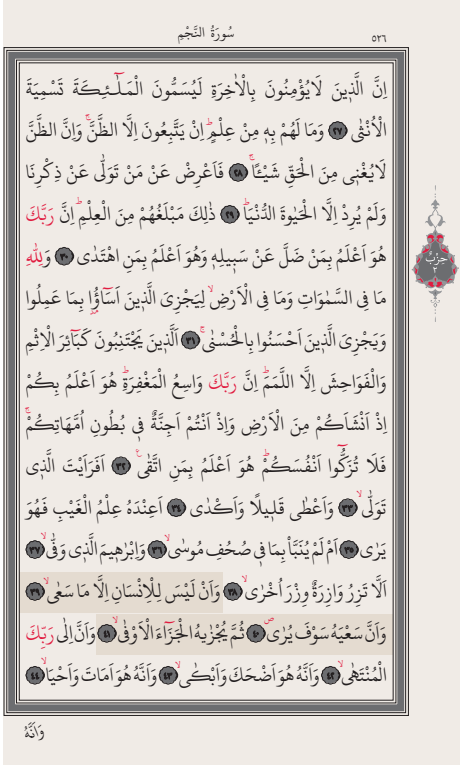 ٥٢٦
سُورَةُ النَّجْمِ
اِنَّ الَّذٖينَ لَايُؤْمِنُونَ بِالْاٰخِرَةِ لَيُسَمُّونَ الْمَلٰٓئِكَةَ تَسْمِيَةَ
الْاُنْثٰى ﴿٢٧﴾ وَمَا لَهُمْ بِهٖ مِنْ عِلْمٍۜ اِنْ يَتَّبِعُونَ اِلَّا الظَّنَّۚ وَاِنَّ الظَّنَّ
لَايُغْنٖى مِنَ الْحَقِّ شَيْـًٔاۚ ﴿٢٨﴾ فَاَعْرِضْ عَنْ مَنْ تَوَلّٰى عَنْ ذِكْرِنَا
وَلَمْ يُرِدْ اِلَّا الْحَيٰوةَ الدُّنْيَاۜ ﴿٢٩﴾ ذٰلِكَ مَبْلَغُهُمْ مِنَ الْعِلْمِۜ اِنَّ رَبَّكَ
هُوَ اَعْلَمُ بِمَنْ ضَلَّ عَنْ سَبٖيلِهٖ وَهُوَ اَعْلَمُ بِمَنِ اهْتَدٰى ﴿٣٠﴾ وَلِلّٰهِ
مَا فِى السَّمٰوَاتِ وَمَا فِى الْاَرْضِۙ لِيَجْزِىَ الَّذٖينَ اَسَٓاؤُ۫ا بِمَا عَمِلُوا
وَيَجْزِىَ الَّذٖينَ اَحْسَنُوا بِالْحُسْنٰىۚ ﴿٣١﴾ اَلَّذٖينَ يَجْتَنِبُونَ كَبَٓائِرَ الْاِثْمِ
وَالْفَوَاحِشَ اِلَّا اللَّمَمَۜ اِنَّ رَبَّكَ وَاسِعُ الْمَغْفِرَةِۜ هُوَ اَعْلَمُ بِكُمْ
اِذْ اَنْشَاَكُمْ مِنَ الْاَرْضِ وَاِذْ اَنْتُمْ اَجِنَّةٌ فٖى بُطُونِ اُمَّهَاتِكُمْۚ
فَلَا تُزَكُّٓوا اَنْفُسَكُمْۜ هُوَ اَعْلَمُ بِمَنِ اتَّقٰىۚ ﴿٣٢﴾ اَفَرَاَيْتَ الَّذٖى
تَوَلّٰىۙ ﴿٣٣﴾ وَاَعْطٰى قَلٖيلًا وَاَكْدٰى ﴿٣٤﴾ اَعِنْدَهُ عِلْمُ الْغَيْبِ فَهُوَ
يَرٰى ﴿٣٥﴾ اَمْ لَمْ يُنَبَّاْ بِمَا فٖى صُحُفِ مُوسٰىۙ ﴿٣٦﴾ وَاِبْرٰهٖيمَ الَّذٖى وَفّٰىۙ ﴿٣٧﴾
اَلَّا تَزِرُ وَازِرَةٌ وِزْرَ اُخْرٰىۙ ﴿٣٨﴾ وَاَنْ لَيْسَ لِلْاِنْسَانِ اِلَّا مَا سَعٰىۙ ﴿٣٩﴾
وَاَنَّ سَعْيَهُ سَوْفَ يُرٰىۖ ﴿٤٠﴾ ثُمَّ يُجْزٰيهُ الْجَزَٓاءَ الْاَوْفٰىۙ ﴿٤١﴾ وَاَنَّ اِلٰى رَبِّكَ
الْمُنْتَهٰىۙ ﴿٤٢﴾ وَاَنَّهُ هُوَ اَضْحَكَ وَاَبْكٰىۙ ﴿٤٣﴾ وَاَنَّهُ هُوَ اَمَاتَ وَاَحْيَاۙ ﴿٤٤﴾
وَاَنَّهُ
حِزْبُ
٢